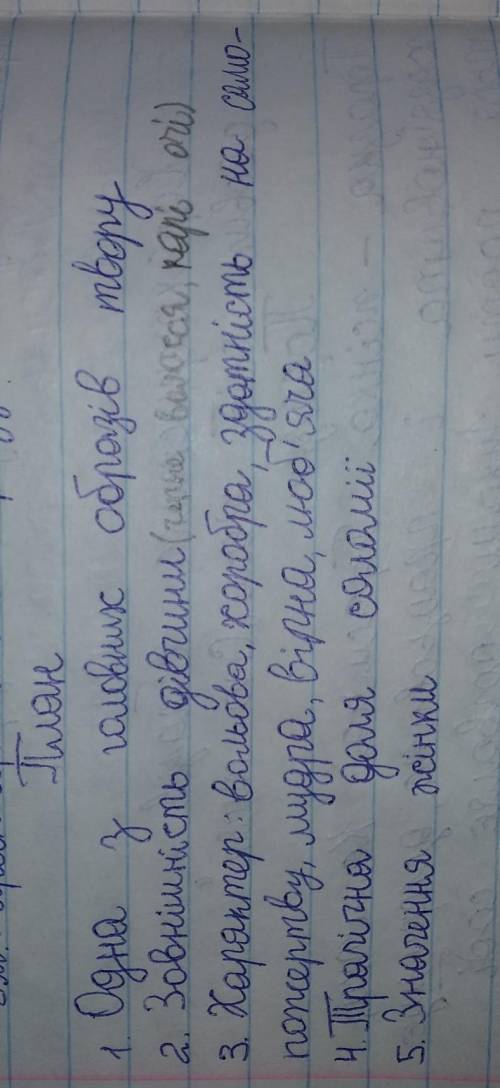 План
1. Одна з головних образів твору
2. Зовнішність дівчини (чорне волосся, карі очі)
3. Характер: вольова, хоробра, здатність на само-
пожертву, мудра, вірна, любл'яча
4. Трагічна доля Соломії
5. Значення жінки